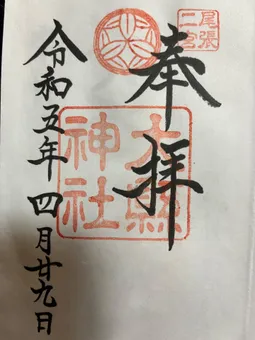 尾張
二宮
奉拝
大縣
神社
令和五年 四月廿九日